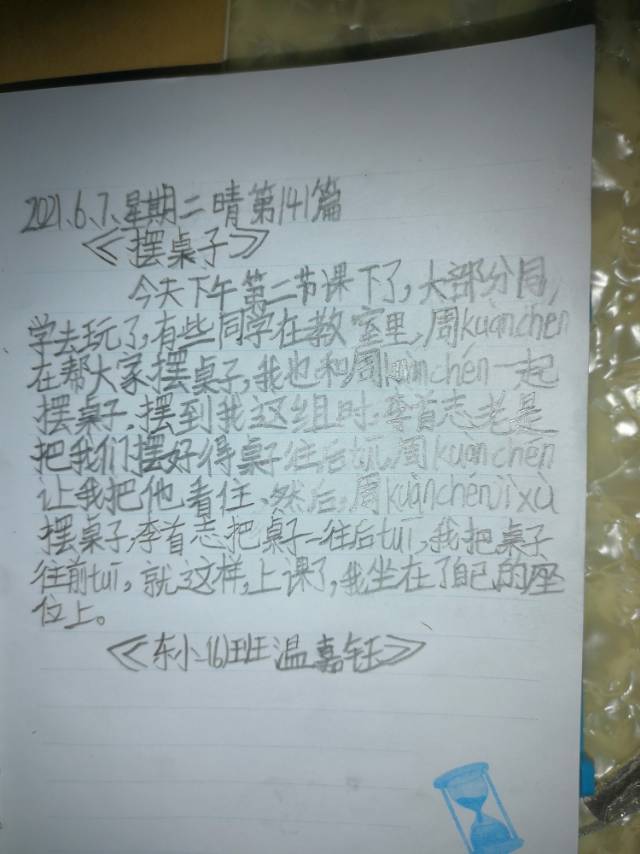 2021、6、7、星期二 晴 第141篇
《摆桌子》
今天下午第二节课下了,大部分同
学去玩了,有些同学在教室里,周kuànchén
在帮大家摆桌子,我也和周kuànchén一起
摆桌子,摆到我这组时,李首志老是
把我们摆好得桌子往后tuī,周kuànchén
让我把他看住、然后,周kuànchénjìxù
摆桌子,李首志把桌子一往后tuī,我把桌子
往前tuī。就这样,上课了,我坐在了自己的座
位上。
《东小一(6)班温嘉钰》